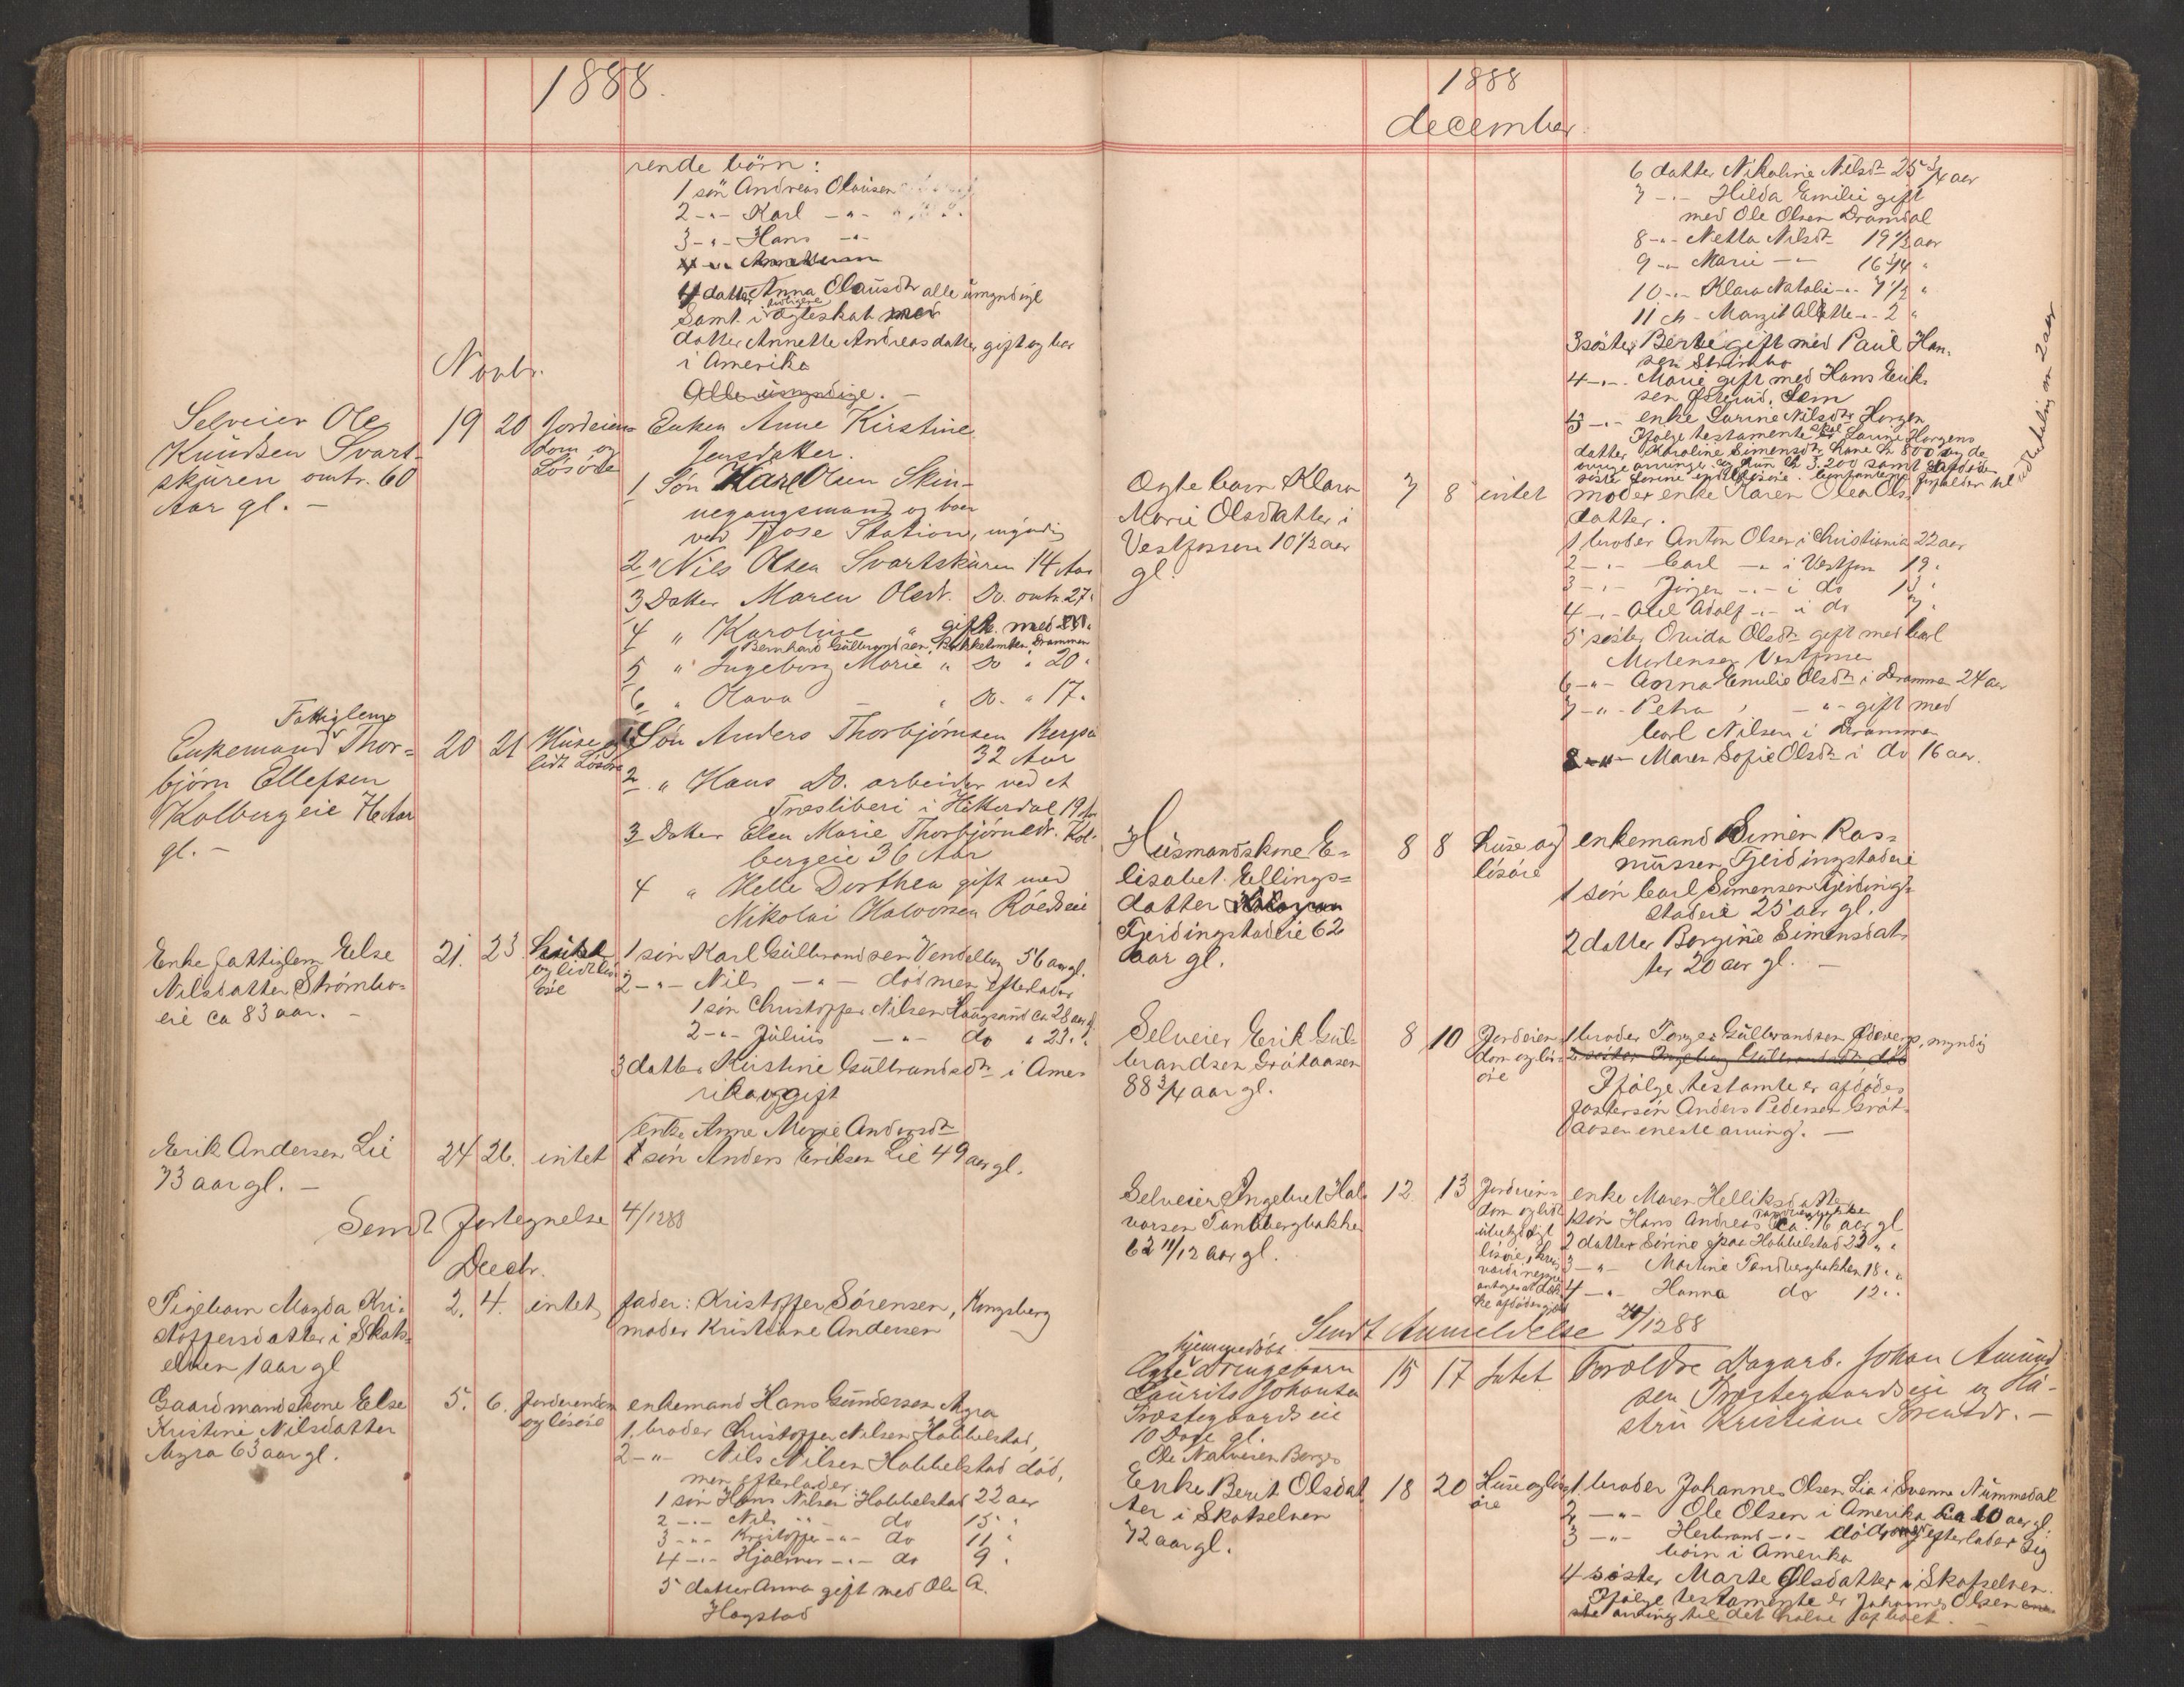 1888.
rende börn:
1 sön Andreas Olausen
2 -"- Karl -"-
3 -"- Hans -"-
4 datter Anna Olausdtr alle umyndige
Samt i tidligere ægteskab med
datter Annette Andreasdatter gift og bor
i Amerika
Alle umyndige. -
Novbr.
Selveier Ole
Knudsen Svart-
skuren omtr. 60
Aar gl. -
19 20 Jordeien-
dom og
Lösöre
Enken Anne Kirstine
Jensdatter.
1 Sön Karl Olsen Skin-
negangsmand og boer
ved Tjose Station, myndig
2 " Nils Olsen Svartskuren 14 Aar
3 Datter Maren Olsdr. Do. omtr. 27 "
4 " Karoline " gift med
Bernhard Gulbrandsen, Drammen
5 " Ingeborg Marie " Do " 20 "
6 " Olava " Do. " 17 "
Fattiglem
Enkemand Thor-
björn Ellefsen
Kolbergeie 76 Aar
gl. -
20 21 Huse og
lidt Lösöre
1 Sön Anders Thorbjörnsen Berpaa
32 Aar
2 " Hans Do. arbeider ved et
Træsliberi i Hitterdal 19 Aar
3 Datter Elen Marie Thorbjörnsdr. Kol-
bergeie 36 Aar
4 " Helle Dorthea gift med
Nikolai Halvorsen Röedseie
Enke fattiglem Else
Nilsdatter Strömbo-
eie ca 83 aar. -
21. 23.
og lidt lös-
öre
1 sön Karl Gulbrandsen Vendelborg 56 aar gl.
2 -"- Nils -"- död men efterlader
1 sön Christoffer Nilsen Haugsund ca 28 aar gl.
2 -"- Julius -"- do " 23 " "
3 datter Kirstine Gulbrandsdtr i Ame-
rika og gift
Erik Andersen Lie
73 aar gl. -
24 26. intet
enke Anne Marie Andersdtr
1 sön Anders Eriksen Lie 49 aar gl.
Sendt Fortegnelse 4/12 88
Decbr.
Pigebarn Magda Kri-
stoffersdatter i Skots-
elven 1 aar gl
2. 4. intet
fader: Kristoffer Sörensen, Kongsberg
moder Kristiane Andersen
Gaardmandskone Else
Kristine Nilsdatter
Myra 63 aar gl.
5. 6. Jordeiendom
og lösöre
enkemand Hans Gundersen Myra
1. broder Christoffer Nilsen Hobbelstad,
2 -"- Nils Nilsen Hobbelstad död,
men efterlader:
1 sön Hans Nilsen Hobbelstad 22 aar
2 -"- Nils -"- do 15 "
3 -"- Kristoffer -"- do 11 "
4 -"- Hjalmar -"- do 9 "
5 datter Anna gift med Ole A.
Hagstad
1888
december
6 datter Nikoline Nilsdtr 25 3/4 aar
7 -"- Hilda Emilie gift
med Ole Olsen Dramdal
8 -"- Netta Nilsdtr 19 1/2 aar
9 -"- Marie -"- 16 3/4 "
10 -"- Klara Natalie -"- 7 1/2 "
11 -"- Margit Alette -"- 2 "
3 söster Berte gift med Paul Han-
sen Strömbo
4 -"- Marie gift med Hans Erik-
sen Österud, Lem
5 -"- enke Larine Nilsdtr Horgen
Ifölge testamente skal Laurine Horgens
datter Karoline Simensdtr have kr 800 og de
övrige arvinge og hun kr 3.200 samt afdödes
söster Lovine endel lösöre.
Ægte barn Klara
Marie Olsdatter i
Vestfossen 10 1/2 aar
gl.
7 8 intet
moder enke Karen Olea Ols-
datter.
1 broder Anton Olsen i Christiania 22 aar
2 -"- Carl -"- i Vestfos 19 "
3 -"- Jörgen -"- i do 13 "
4 -"- Axel Adolf -"- i do 7 "
5 söster Ovida Olsdtr gift med Carl
Mortensen Vestfossen
6 -"- Anna Emilie Olsdtr i Drammen 24 aar
7 -"- Petra -"- gift med
Carl Nilsen i Drammen
8 -"- Maren Sofie Olsdtr i do 16 aar.
Husmandskone E-
lisabet Ellings-
datter
Fjerdingstadeie 62
aar gl.
8 8 huse og
lösöre
enkemand Simen Ras-
mussen Fjerdingstadeie
1 sön Carl Simensen Fjerding-
stadeie 25 aar gl.
2 datter Borgine Simensdat-
ter 20 aar gl. -
Selveier Erik Gul-
brandsen Gråtaasen
88 3/4 aar gl.
8 10 Jordeien-
dom og lös-
öre
1 broder Torger Gulbrandsen Ödeverp, myndig
2 söster Ingeborg Gulbrandsdtr, död
Ifölge testamte er afdödes
fostersön Anders Pedersen Gråt-
aasen eneste arving. -
Selveier Ingebret Hal-
vorsen Tandbergbakken
62 11/12 aar gl.
12. 13 Jordeien-
dom og lidt
ubetydeligt
lösöre, hvis
værdi neppe
antages at dæk-
ke afdödes gjæld
enke Maren Helliksdatter
1 sön Hans Andreas Tandbergbakken ca. 16 aar gl
2 datter Sörine paa Hobbelstad 22 " "
3 -"- Martine Tandbergbakken 18 " "
4 -"- Hanna do 12 " "
Sendt Anmeldelse 20/12 88
hjemmedöbt
Ægte Drengebarn
Laurits Johansen
Præstegaardseie
10 Dage gl.
15 17 Intet.
Forældre Dagarb. Johan Amund-
sen Præstegaardseie og Hu-
stru Kristiane Sörensdr. -
Ole Natvesen Borges
Enke Berit Olsdat-
ter i Skotselven
72 aar gl.
18 20 Huse og lös-
öre
1. broder Johannes Olsen Lia i Svenne Nummedal
2 -"- Ole Olsen i Amerika ca 60 aar gl.
3 -"- Herbrand -"- död og efterlader sig
börn i Amerika
4 söster Marte Olsdatter i Skotselven.
Ifölge testamente er Johannes Olsen ene-
ste arving til det halve af boet. -